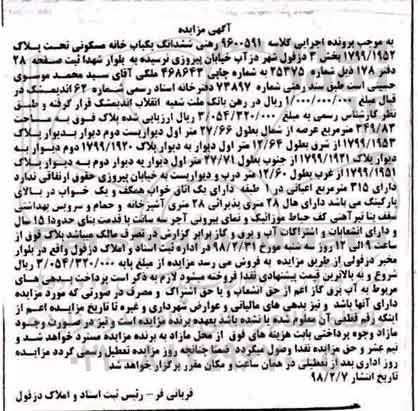 آگهی مزایده
به موجب پرونده اجرایی کلاسه ۹۶۰۰۵۹۱ رهنی ششدانگ یکباب خانه مسکونی تحت پلاک
۱۷۹۹/۱۹۵۲ بخش ۳ دزفول شهر دزآب خیابان پیروزی نرسیده به بلوار شهدا ثبت صفحه ۲۸
دفتر ۱۷۸ ذیل شماره ۲۵۳۷۵ به شماره چاپی ۴۶۸۶۴۳ ملکی آقای سید محمد موسوی
حسینی است طبق سند رهنی شماره ۷۳۸۹۷ دفترخانه اسناد رسمی شماره ۶۲ اندیمشک در
قبال مبلغ ۱/۰۰۰/۰۰۰/۰۰۰ ریال در رهن بانک ملت شعبه انقلاب اندیمشک قرار گرفته و طبق
نظر کارشناس رسمی به مبلغ ۳/۰۵۴/۳۲۰/۰۰۰ ریال ارزیابی شده پلاک فوق به مساحت
۳۴۹/۸۳ مترمربع عرصه از شمال بطول ۲۷/۶۶ متر اول دیواریست دوم دیوار بدیوار پلاک
۱۷۹۹/۱۹۵۳ از شرق بطول ۱۲/۶۴ متر اول دیوار به دیوار پلاک ۱۷۹۹/۱۹۲۰ دوم بدیوار به
دیوار پلاک ۱۷۹۹/۱۹۲۱ از جنوب بطول ۲۷/۷۱ متر اول دیوار به دیوار دوم به دیوار پلاک
۱۷۹۹/۱۹۵۱ از غرب بطول ۱۲/۶۰ متر درب و دیواریست به خیابان پیروزی حقوق ارتفاقی ندارد
دارای ۳۱۵ مترمربع اعیانی در ۱ طبقه دارای یک اتاق خواب همکف و یک خواب در بالای
پارکینگ می باشد دارای هال ۲۸ متری پذیرائی ۲۸ متری آشپزخانه و حمام و سرویس بهداشتی
سقف بنا تیر آهنی کف حیاط موزائیک و نمای بیرونی آجر سه سانت با قدمت بنای حدودا ۱۵ سال
و دارای انشعابات و اشتراکات آب و برق و گاز برابر گزارش در تصرف مالک میباشد پلاک فوق از
ساعت ۹ الی ۱۲ روز سه شنبه مورخ ۹۸/۲/۳۱ در اداره ثبت اسناد و املاک دزفول واقع در بلوار
مخبر دزفولی از طریق مزایده به فروش می رسد مزایده از مبلغ پایه ۳/۰۵۴/۳۲۰/۰۰۰ ریال
شروع و به بالاترین قیمت پیشنهادی نقدا فروخته میشود لازم به ذکر است پرداخت بدهی های
مربوط به آب برق گاز اعم از حق انشعاب و یا حق اشتراک و مصرف در صورتی که مورد مزایده
دارای آنها باشد و نیز بدهی های مالیاتی و عوارض شهرداری و غیره تا تاریخ مزایده اعم از
اینکه رقم قطعی آن معلوم شده یا نشده باشد بعهده برنده مزایده است و نیز در صورت وجود
مازاد وجوه پرداختی بابت هزینه های فوق از محل مازاد به برنده مزایده مسترد خواهد شد و
نیم عشر و حق مزایده نقدا وصول میگردد ضمنا چنانچه روز مزایده تعطیل رسمی گردد مزایده
روز اداری بعد از تعطیلی در همان ساعت و مکان مقرر برگزار خواهد شد
تاریخ انتشار ۹۸/۲/۷
قربانی فر – رئیس ثبت اسناد و املاک دزفول